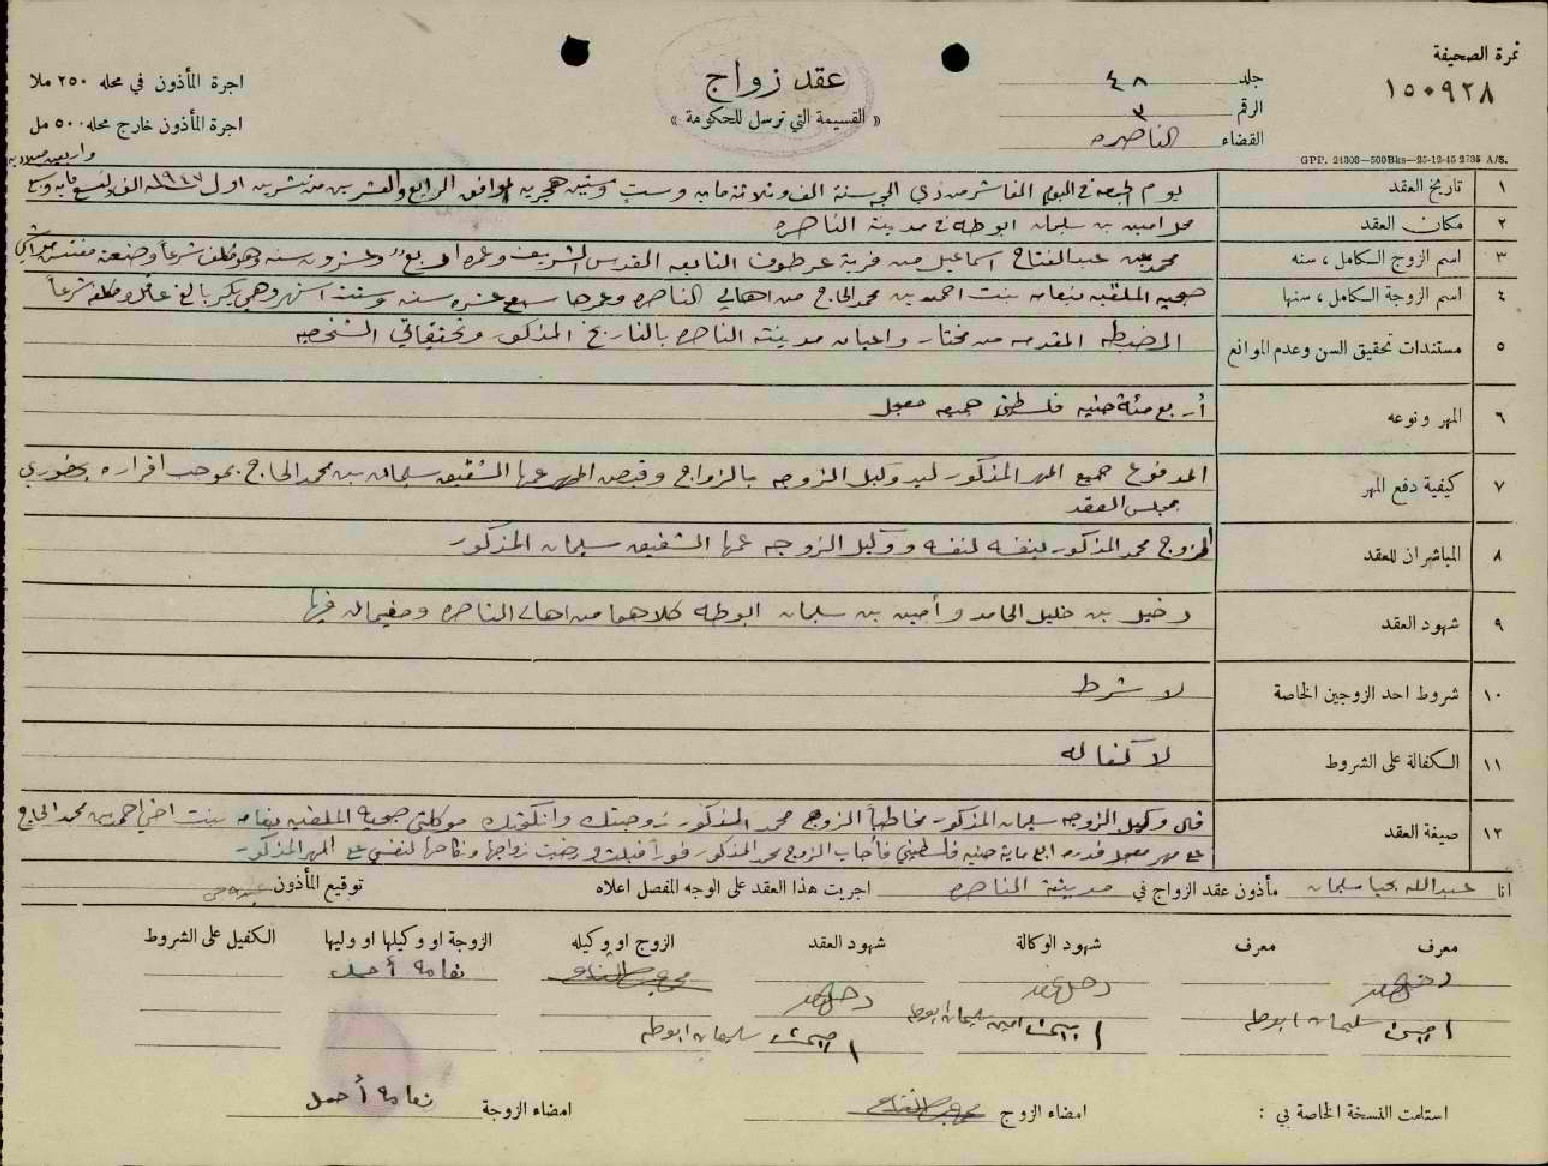 نمرة الصحيفة
١٥٠٩٢٨
جلد ٤٨
الرقم ٣
القضاء الناصره
عقد زواج
« القسيمة التي ترسل للحكومة »
اجرة المأذون في محله ٢٥٠ ملا
اجرة المأذون خارج محله ٥٠٠ مل
GPP. 24303—500Bks—25-12-45 2735 A/S.
واربعين ميلاديه
١ تاريخ العقد يوم الجمعه في اليوم العاشر من ذي الحجه سنة الف وثلاثمايه وست وستين هجريه الموافق الرابع والعشرين من تشرين اول سنة ١٩٤٧ الف وتسع مايه وسبع
٢ مكان العقد محل امين بن سليمان ابو طه في مدينة الناصره
٣ اسم الزوج الكامل ، سنه محمد بن عبد الفتاح اسماعيل من قرية عرطوف التابعه القدس الشريف وعمره اربع وعشرون سنه وهو مكلف شرعاً وصنعته مفتش
٤ اسم الزوجة الكامل ، سنها صبحيه الملقبه بنعامه بنت احمد بن محمد الحاج من اهالي الناصره وعمرها سبع عشره سنه وستة اشهر وهي بكر بالغ عاقل ومكلفه شرعاً
٥ مستندات تحقيق السن وعدم الموانع المضبطه المقدمه من مختار واعيان مدينة الناصره بالتاريخ المذكور وتحقيقاتي الشخصيه
٦ المهر ونوعه أربع مئة جنيه فلسطيني جميعه معجل
٧ كيفية دفع المهر المدفوع جميع المهر المذكور ليد وكيل الزوجه بالزواج وقبض المهر عمها الشقيق سليمان بن محمد الحاج بموجب اقراره بحضوري
بمجلس العقد
٨ المباشران للعقد الزوج محمد المذكور بنفسه لنفسه ووكيل الزوجه عمها الشقيق سليمان المذكور
٩ شهود العقد دخيل بن خليل الحامد وأمين بن سليمان ابو طه كلاهما من اهالي الناصره ومقيمان فيها
١٠ شروط احد الزوجين الخاصة لا شرط
١١ الكفالة على الشروط لا كفاله
١٢ صيغة العقد قال وكيل الزوجه سليمان المذكور مخاطباً الزوج محمد المذكور زوجتك وانكحتك موكلتي صبحيه الملقبه بنعامه بنت اخي احمد بن محمد الحاج
على مهر معجل قدره اربع ماية جنيه فلسطيني فأجاب الزوج محمد المذكور فوراً قبلت ورضيت زواجها ونكاحها لنفسي على المهر المذكور
انا عبدالله يحيا سليمان مأذون عقد الزواج في مدينة الناصره اجريت هذا العقد على الوجه المفصل اعلاه توقيع المأذون
معرف معرف شهود الوكالة شهود العقد الزوج او وكيله الزوجة او وكيلها او وليها الكفيل على الشروط
نعامه أحمد
امين سليمان ابو طه امين سليمان ابو طه
امين سليمان ابو طه
استلمت النسخة الخاصة بي : امضاء الزوج امضاء الزوجة نعامه أحمد